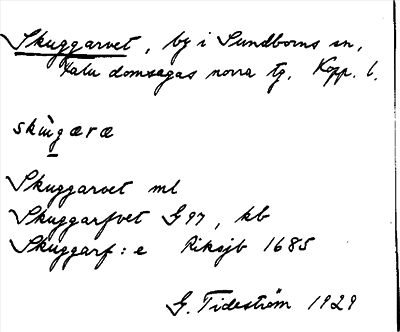 Skuggarvet, by i Sundborns sn,
Falu domsagas norra tg. Kopp. l.
skùgæræ
Skuggarvet ml
Skuggarfvet G97, kb
Skuggarf: e Riksjb 1685
G. Tideström 1929